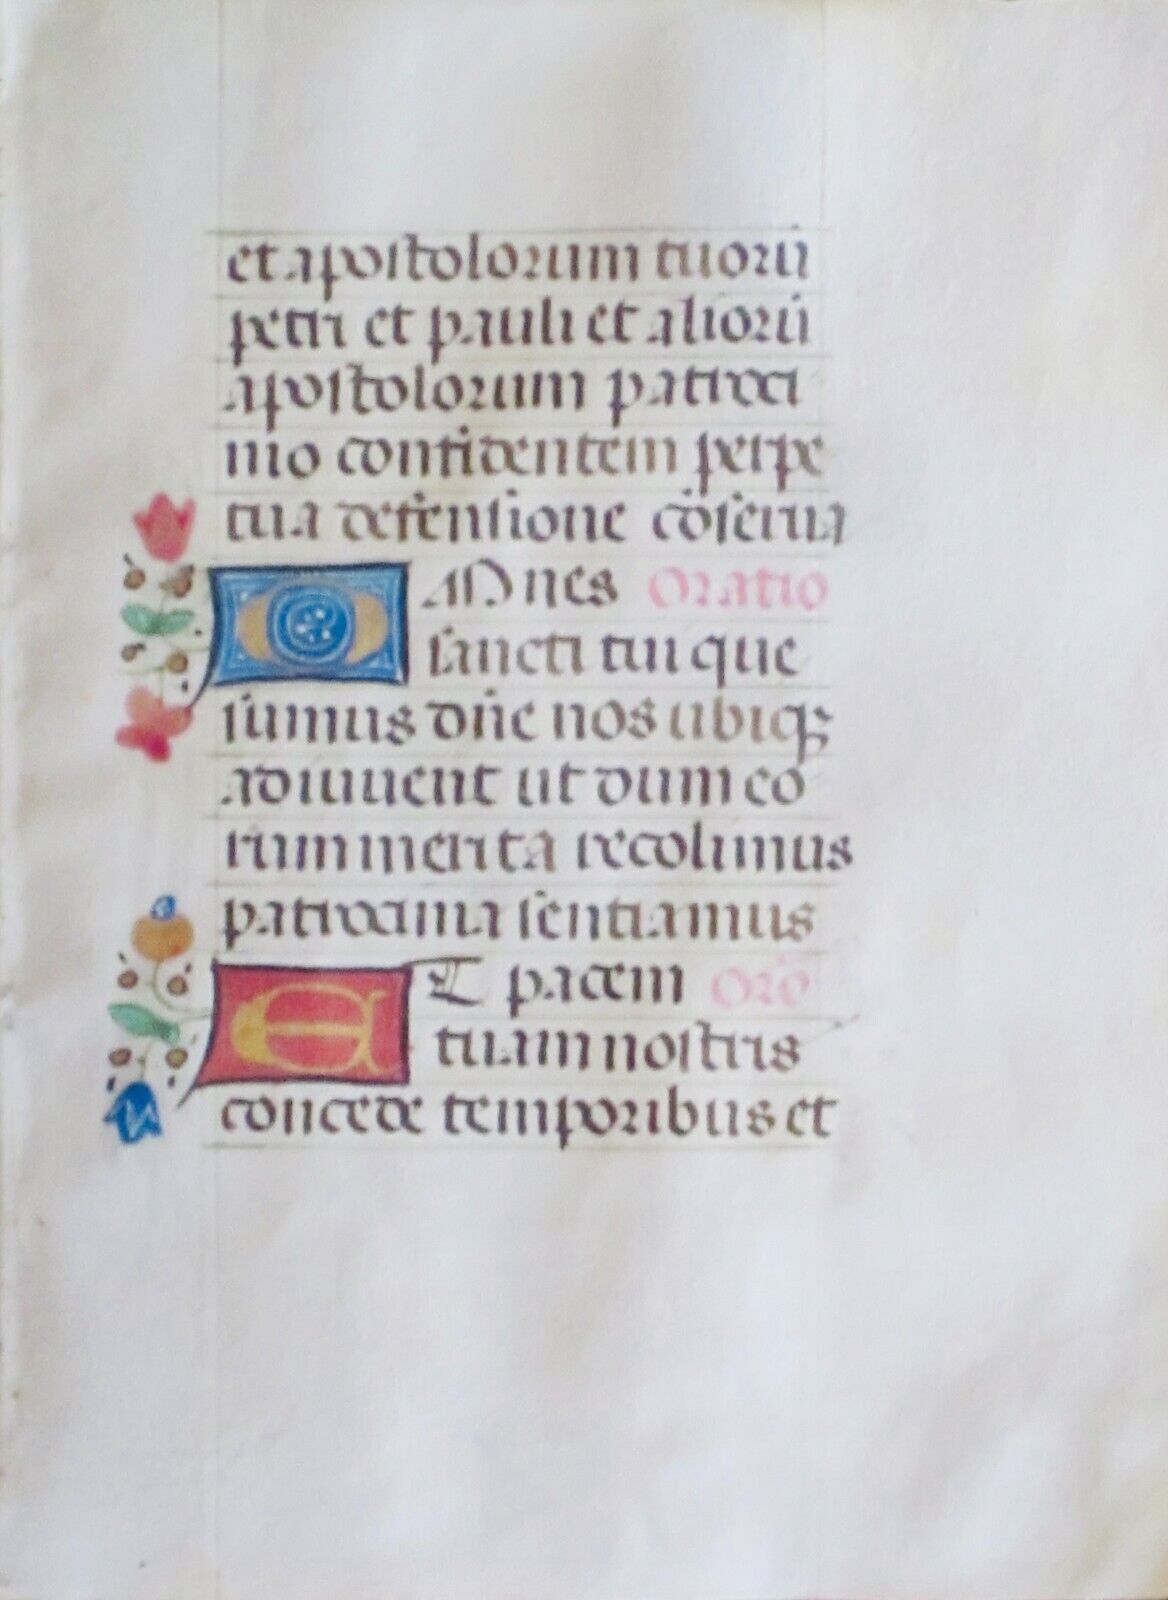 et apostolorum tuorū
petri et pauli et aliorū
apostolorum patroci
nio confidentem perpe
tua defensione cōserua
OMnes Oratio
sancti tui que
sumus dn̄e nos ubiqꝫ
adiuuent ut dum eo
rum merita recolimus
patrocinia sentiamus
ET pacem Orō
tuam nostris
concede temporibus et